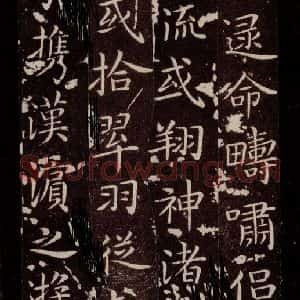 遝命疇嘯侶
流或翔神渚
或拾翠羽從
携漢濵之游
Shufawang.cn